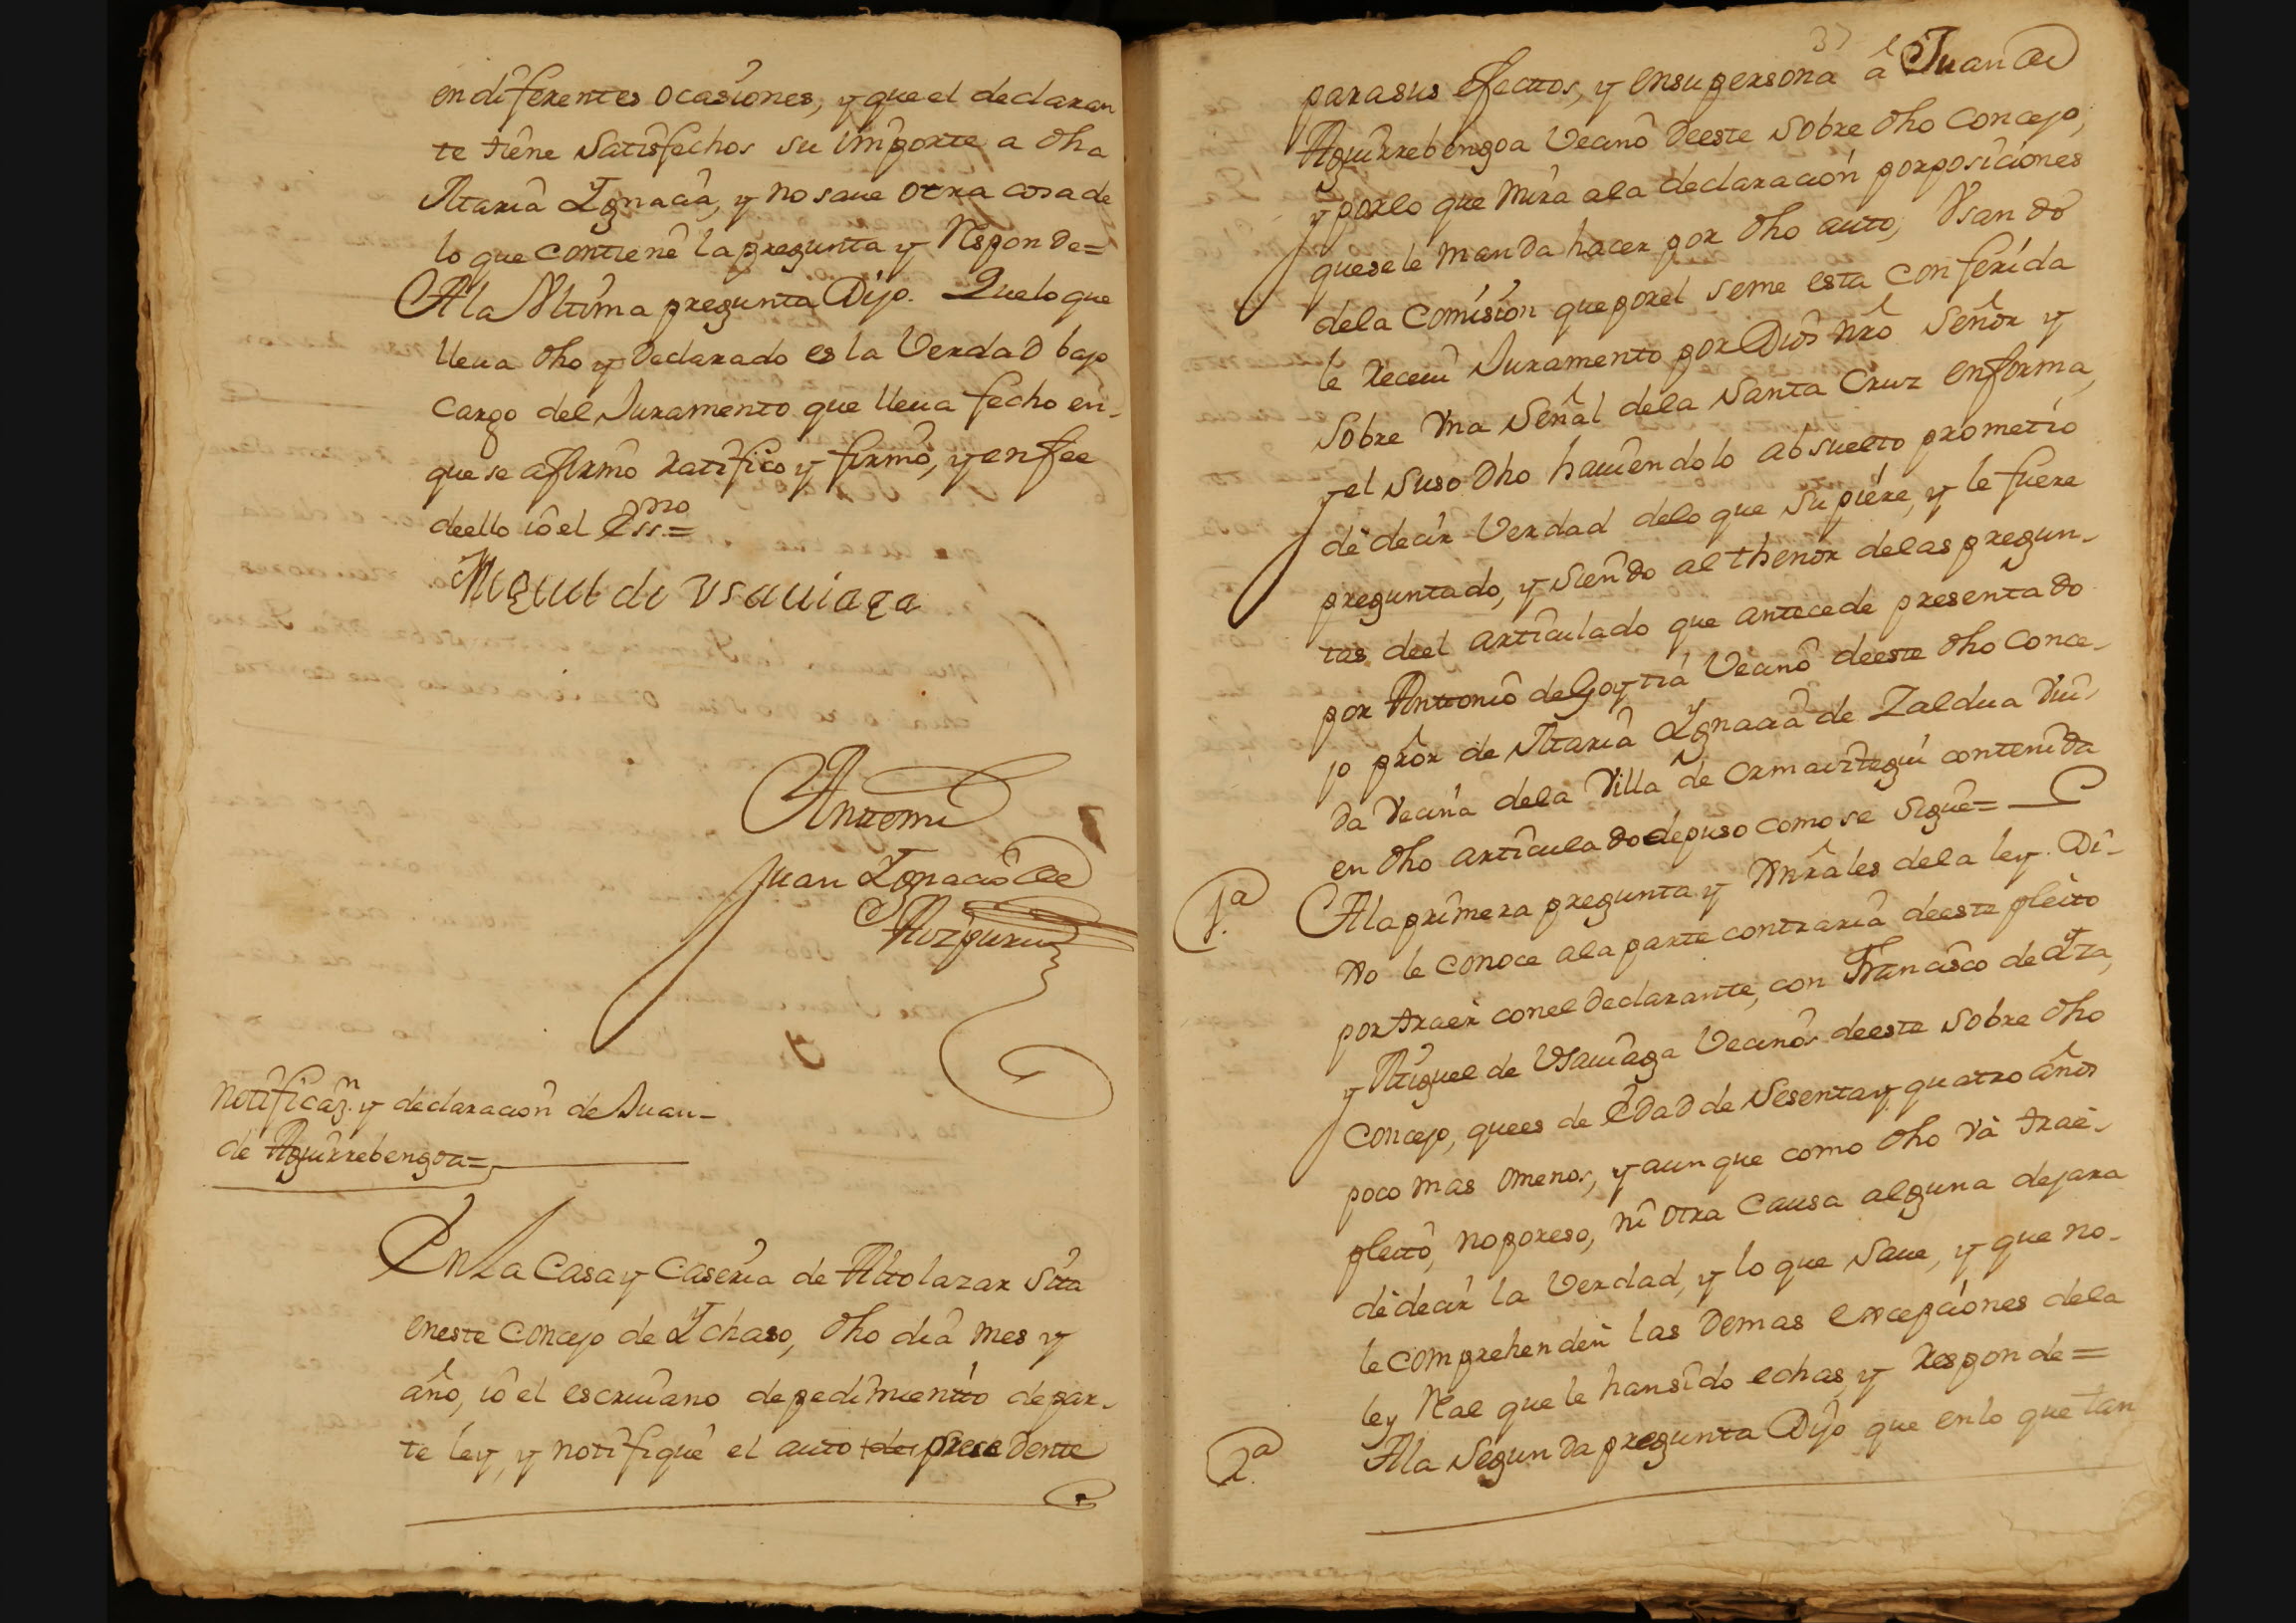 en diferentes ocasiones, y que el declaran
te tiene satisfechos su importe a dha
Maria Ygnacia, y no saue otra cosa de
lo que contiene la pregunta y Responde=
A la Vltima pregunta Dijo. Que lo que
lleua dho y declarado es la Verdad bajo
cargo del Juramento que lleua fecho en-
que se afirmò ratifico y firmò, y en fee
de ello iò el Essno=
Miguel de Vsauiaga
Antemi
Juan Ygnacio de
Aizpuru
Notificazn. y declaracion de Juan-
de Aguirrebengoa=
En La Casa y Caseria de Altolazar sita
en este Concejo de Ychaso, dho dia mes y
año, iò el escriuano de pedimiento de par-
te ley, y notifiquè el auto precedente
37
para sus efectos, y en su persona à Juan de
Aguirrebengoa Vecino de este sobre dho Concejo,
y por lo que mira a la declaracion por posiciones
que se le manda hacer por dho auto, Vsando
de la Comision que por el se me esta conferida
le receui Juramento por Dios nrõ Señor y
sobre Vna Señal de la Santa Cruz en forma,
y el suso dho hauiendolo absuelto prometio
de decir Verdad de lo que supiere, y le fuere
preguntado, y siendo al thenor de las pregun-
tas de el articulado que antecede presentado
por Antonio de Goytia Vecino de este dho Conce-
jo prõr de Maria Ygnacia de Zaldua Viu-
da Vecina de la Villa de Ormaiztegui contenida
en dho articulado depuso como se sigue=
1.ª
A la primera pregunta y Gnrãles de la ley. Di-
No le conoce a la parte contraria de este pleito
por traer con el declarante, con Francisco de Yza,
y Miguel de Vsauiaga Vecinos de este sobre dho
Concejo, que es de Edad de Sesenta y quatro años
poco mas omenos, y aunque como dho và trae-
pleito, no por eso, ni otra Causa alguna dejara
de decir la Verdad, y lo que saue, y que no-
le comprehenden las demas excepciones de la
ley Real que le han sido echas, y Responde=
2.ª
A la Segunda pregunta Dijo que en lo que tan